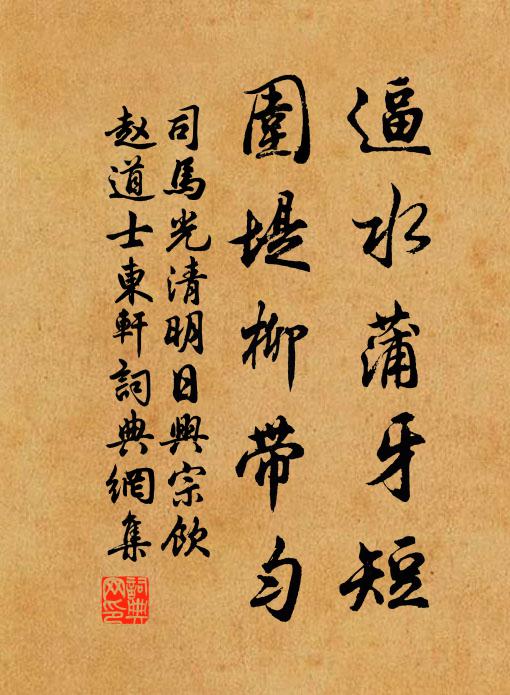 逼水蒲牙短
圍堤柳帶匀
司馬光清明日興宗飲
赵道士東軒詞典網集
詞典网印